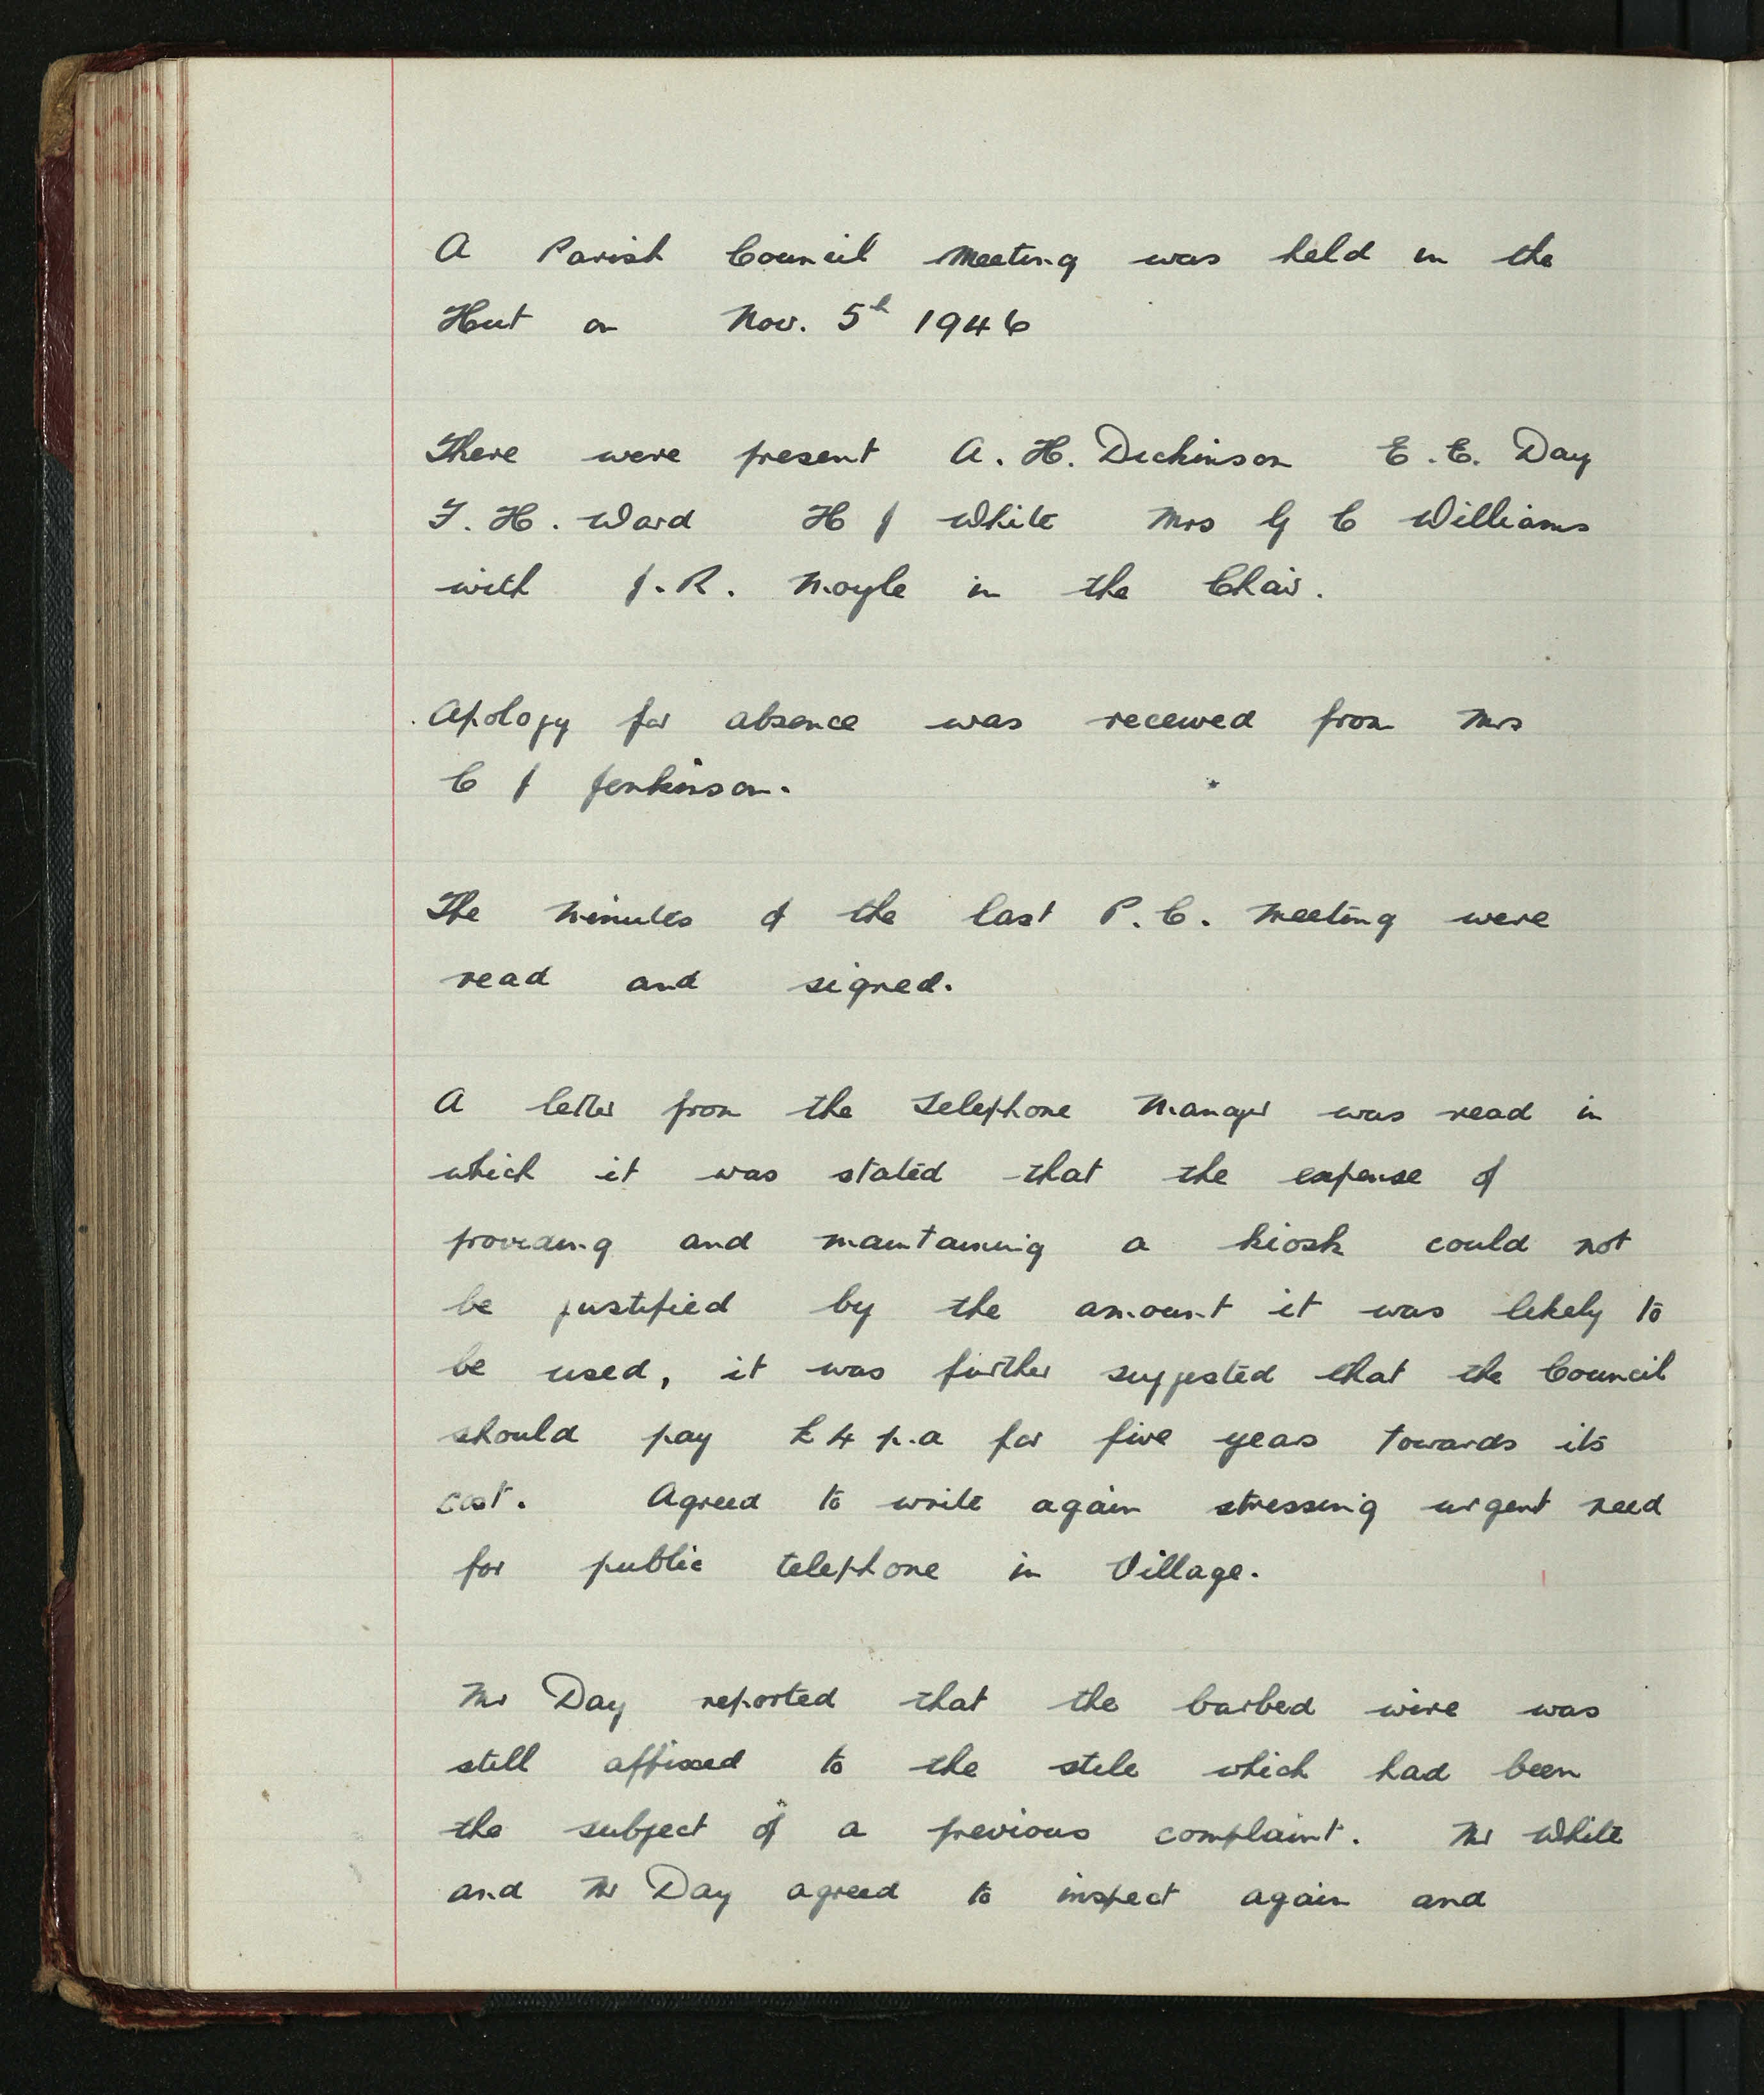 A Parish Council Meeting was held in the
Hut on Nov. 5th 1946
There were present A. H. Dickinson E. E. Day
T. H. Ward H J White Mrs G C Williams
with J. R. Moyle in the Chair.
Apology for absence was received from Mrs
C J Jenkinson.
The Minutes of the last P. C. Meeting were
read and signed.
A letter from the Telephone Manager was read in
which it was stated that the expense of
providing and maintaining a kiosk could not
be justified by the amount it was likely to
be used, it was further suggested that the Council
should pay £4 p.a for five years towards its
cost. Agreed to write again stressing urgent need
for public telephone in Village.
Mr Day reported that the barbed wire was
still affixed to the stile which had been
the subject of a previous complaint. Mr White
and Mr Day agreed to inspect again and